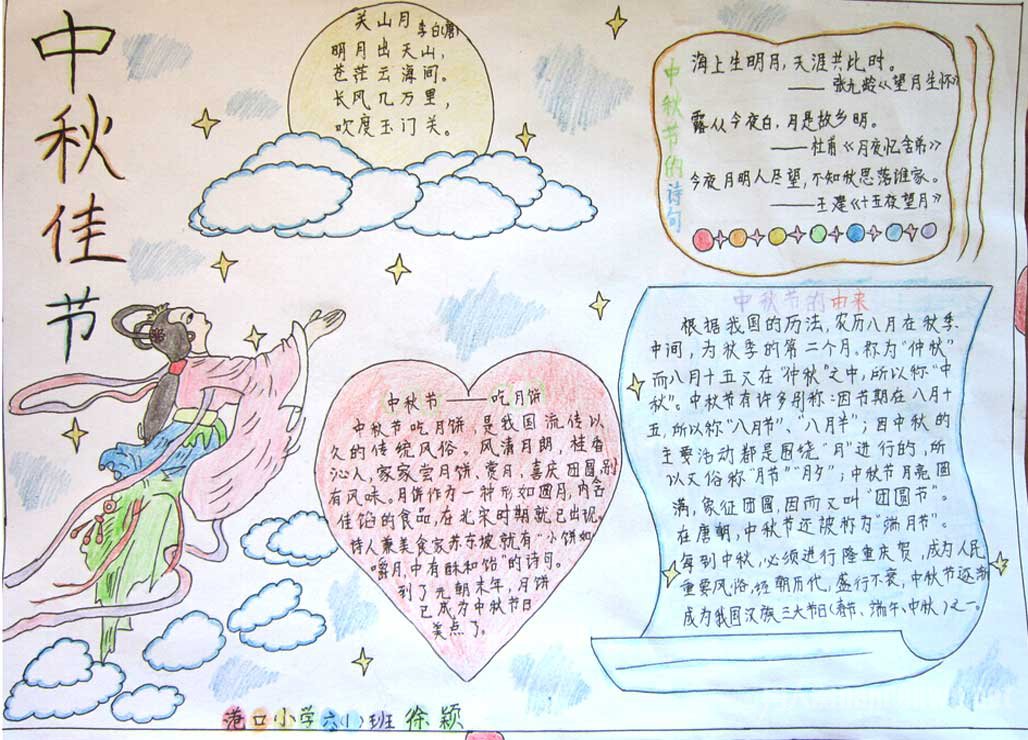 中秋佳节
关山月
李白(唐)
明月出天山，
苍茫云海间。
长风几万里，
吹度玉门关。
中秋节的诗句
海上生明月，天涯共比时。
——张九龄《望月生怀》
露从今夜白，月是故乡明。
——杜甫《月夜忆舍弟》
今夜月明人尽望，不知秋思落谁家。
——王建《十五夜望月》
中秋节的由来
根据我国的历法，农历八月在秋季
中间，为秋季的第二个月。称为"仲秋"
而八月十五又在"仲秋"之中，所以称"中
秋"。中秋节有许多别称：因节期在八月十
五，所以称"八月节"、"八月半"；因中秋的
主要活动都是围绕"月"进行的，所
以又俗称"月节""月夕"；中秋节月亮圆
满，象征团圆，因而又叫"团圆节"。
在唐朝，中秋节还被称为"端月节"。
每到中秋，必须进行隆重庆贺，成为人民
重要风俗，经朝历代，盛行不衰，中秋节逐渐
成为我国汉族三大节日(春节、端午、中秋)之一。
中秋节——吃月饼
中秋节吃月饼，是我国流传以
久的传统风俗。风清月朗，桂香
沁人，家家尝月饼、赏月，喜庆团圆，别
有风味。月饼作为一种形如圆月，内含
佳馅的食品，在北宋时期就已出现。
诗人兼美食家苏东坡就有"小饼如
嚼月，中有酥和饴"的诗句。
到了元朝末年，月饼
已成为中秋节日
美点了。
港口小学六(1)班 徐颖